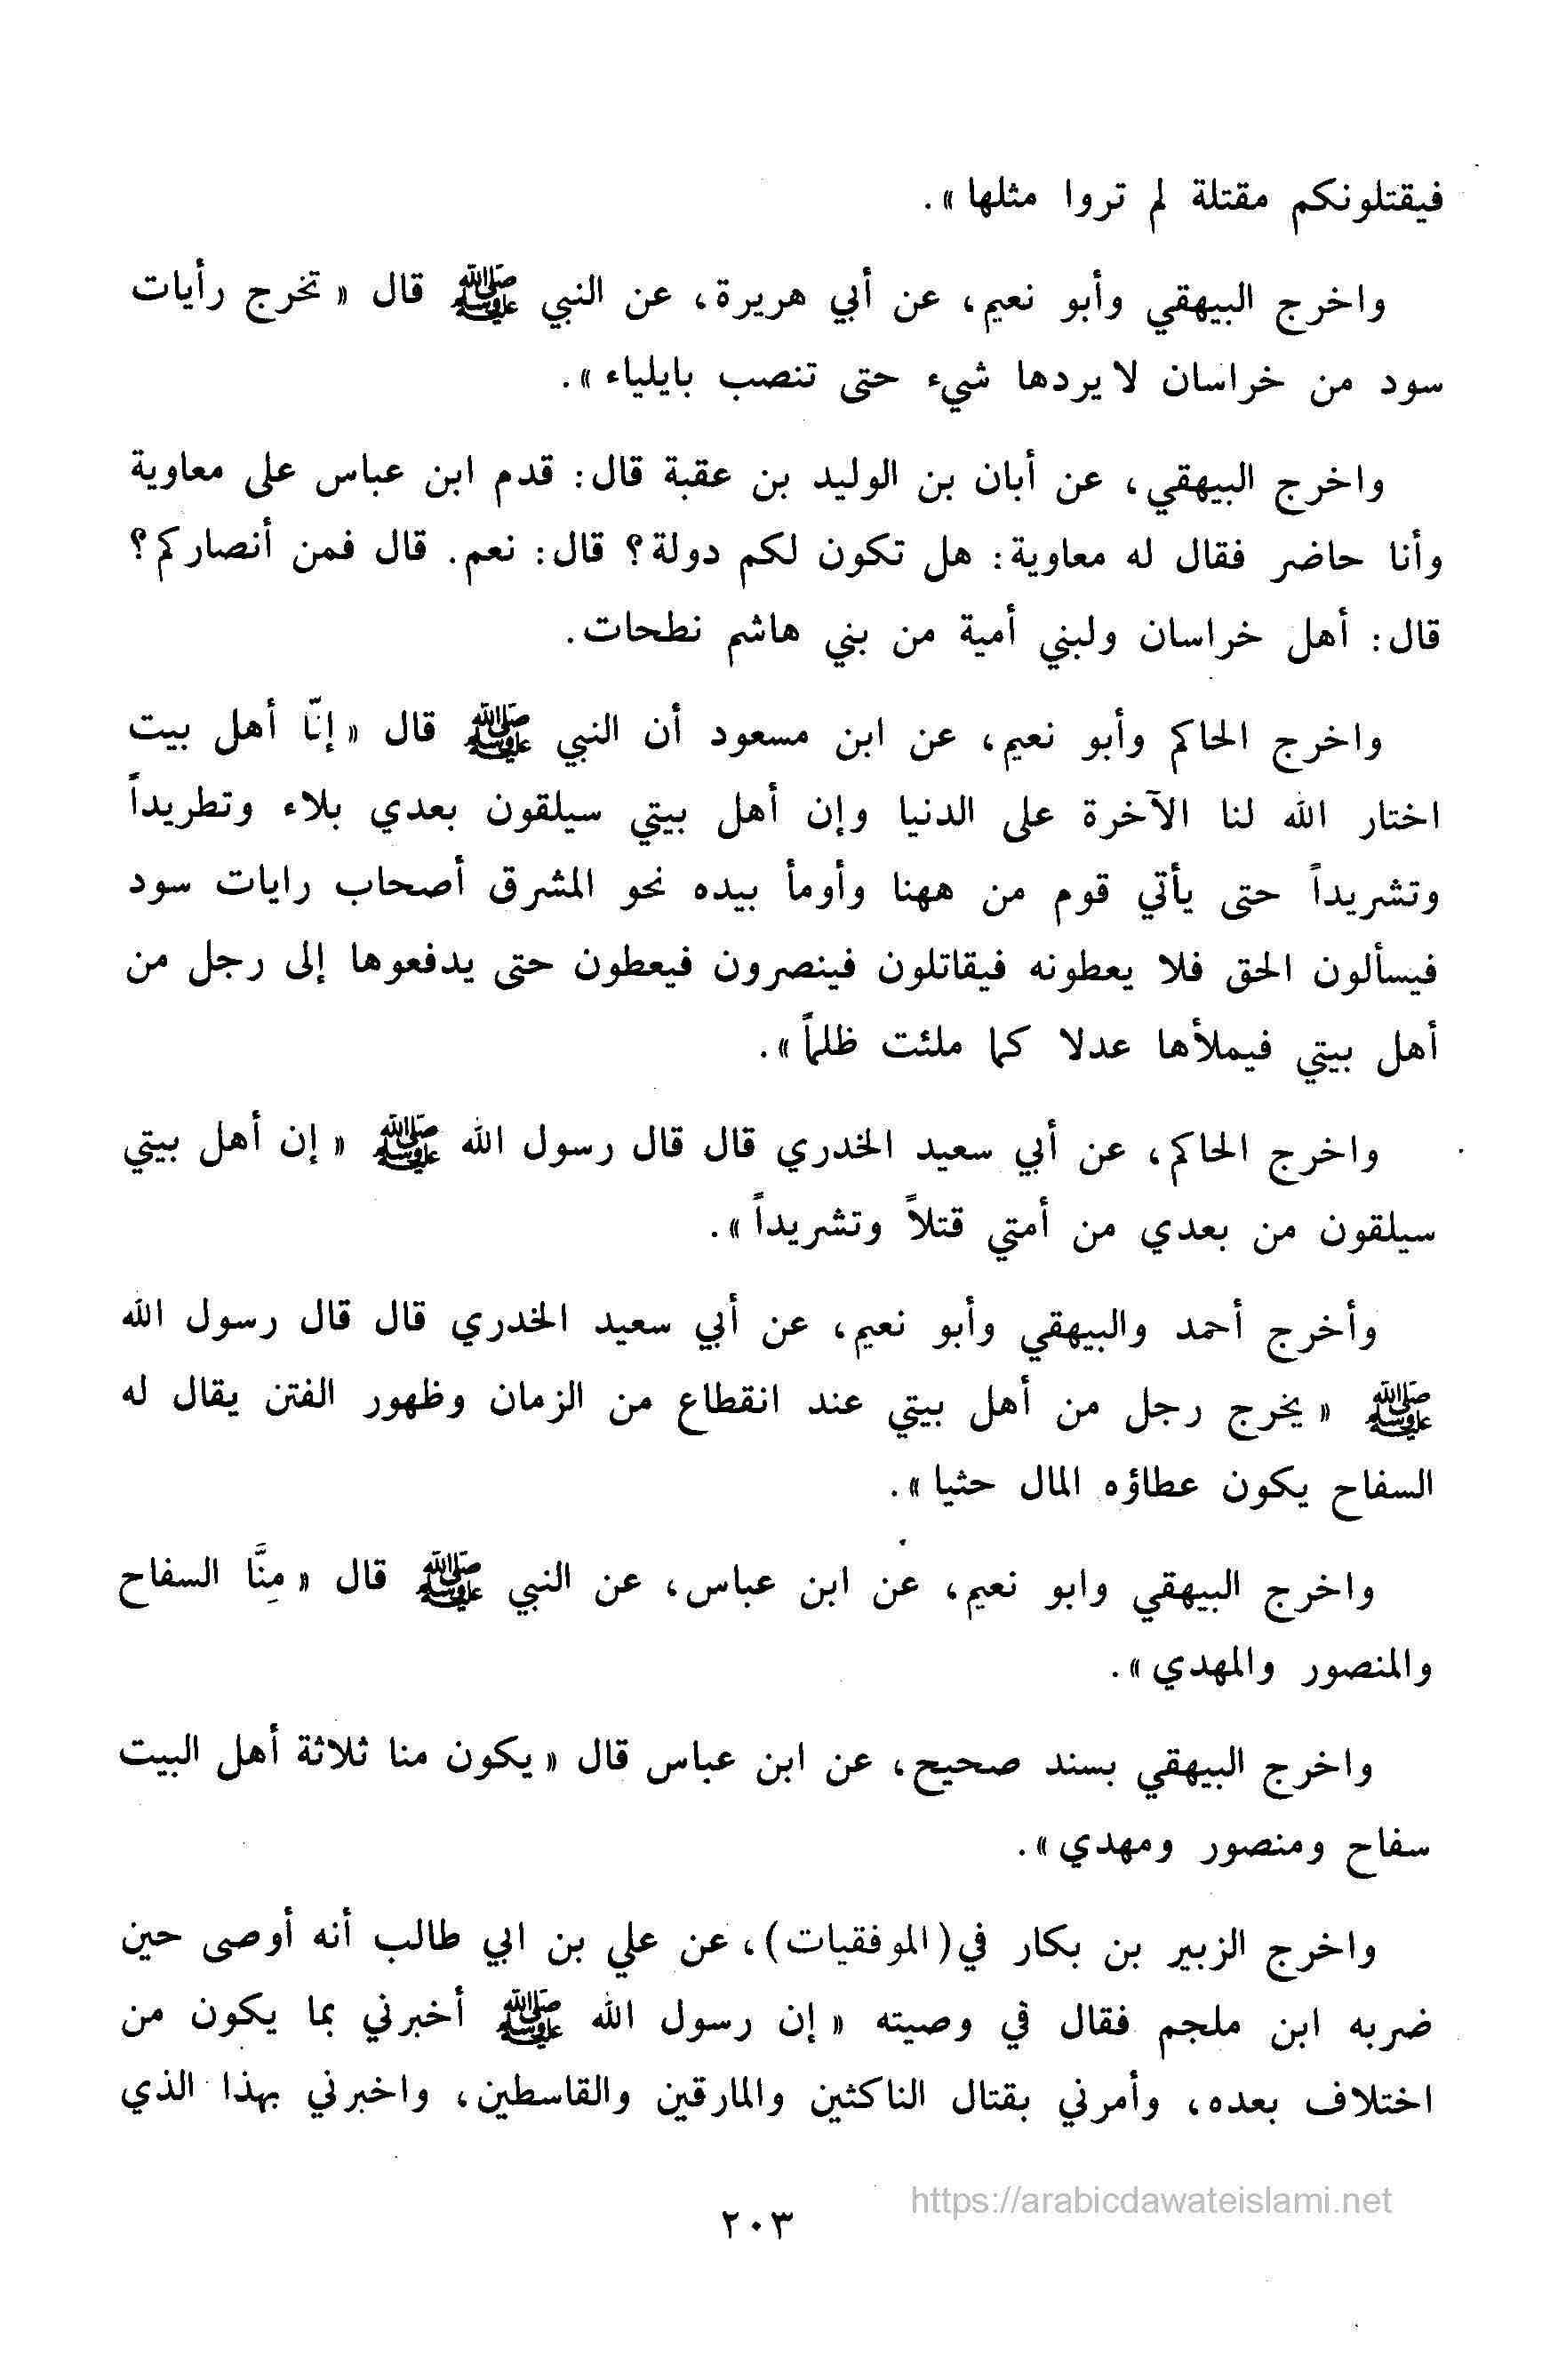 فيقتلونكم مقتلة لم تروا مثلها».
واخرج البيهقي وأبو نعيم، عن أبي هريرة، عن النبي ﷺ قال «تخرج رأيات
سود من خراسان لا يردها شيء حتى تنصب بايلياء».
واخرج البيهقي، عن أبان بن الوليد بن عقبة قال: قدم ابن عباس على معاوية
وأنا حاضر فقال له معاوية: هل تكون لكم دولة؟ قال: نعم. قال فمن أنصاركم؟
قال: أهل خراسان ولبني أمية من بني هاشم نطحات.
واخرج الحاكم وأبو نعيم، عن ابن مسعود أن النبي ﷺ قال «إنّا أهل بيت
اختار الله لنا الآخرة على الدنيا وإن أهل بيتي سيلقون بعدي بلاء وتطريداً
وتشريداً حتى يأتي قوم من ههنا وأومأ بيده نحو المشرق أصحاب رايات سود
فيسألون الحق فلا يعطونه فيقاتلون فينصرون فيعطون حتى يدفعوها إلى رجل من
أهل بيتي فيملأها عدلا كما ملئت ظلماً».
واخرج الحاكم، عن أبي سعيد الخدري قال قال رسول الله ﷺ «إن أهل بيتي
سيلقون من بعدي من أمتي قتلاً وتشريداً».
وأخرج أحمد والبيهقي وأبو نعيم، عن أبي سعيد الخدري قال قال رسول الله
ﷺ «يخرج رجل من أهل بيتي عند انقطاع من الزمان وظهور الفتن يقال له
السفاح يكون عطاؤه المال حثيا».
واخرج البيهقي وابو نعيم، عن ابن عباس، عن النبي ﷺ قال «مِنَّا السفاح
والمنصور والمهدي».
واخرج البيهقي بسند صحيح، عن ابن عباس قال «يكون منا ثلاثة أهل البيت
سفاح ومنصور ومهدي».
واخرج الزبير بن بكار في (الموفقيات)، عن علي بن ابي طالب أنه أوصى حين
ضربه ابن ملجم فقال في وصيته «إن رسول الله ﷺ أخبرني بما يكون من
اختلاف بعده، وأمرني بقتال الناكثين والمارقين والقاسطين، واخبرني بهذا الذي
https://arabicdawateislami.net
٢٠٣